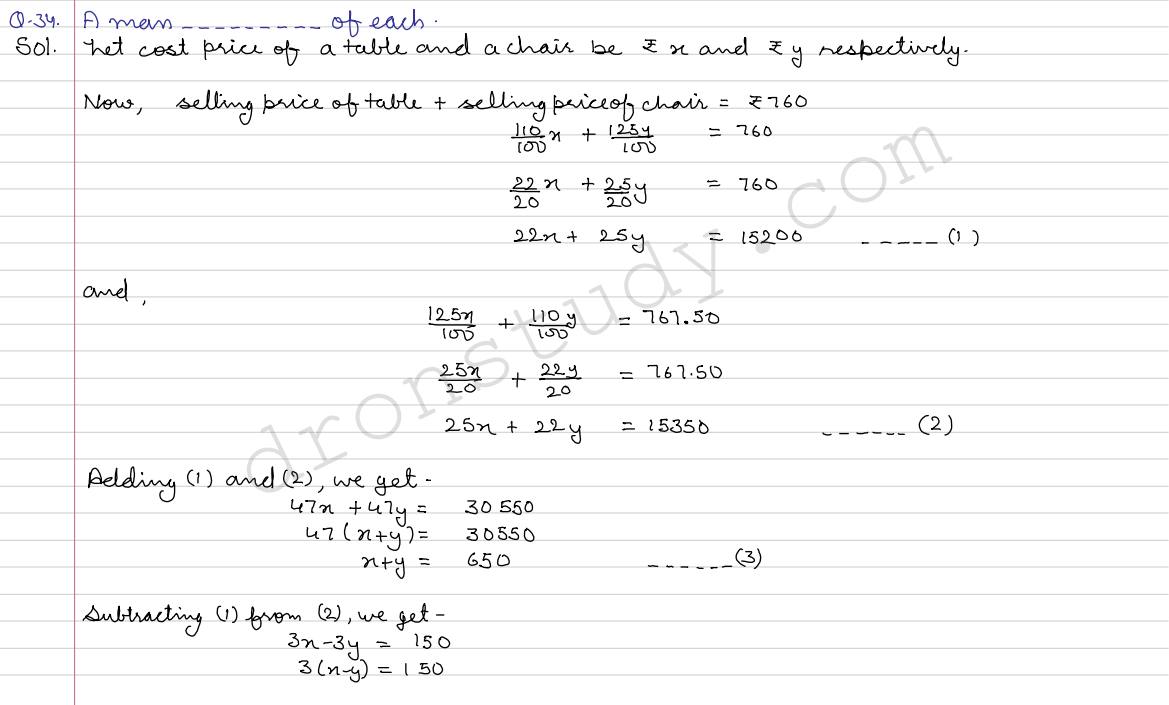 Q.34. A man --------- of each.
Sol. Let cost price of a table and a chair be ₹ x and ₹ y respectively.
Now, selling price of table + selling price of chair = ₹ 760
110/100 x + 125y/100 = 760
22/20 x + 25/20 y = 760
22x + 25y = 15200 ----- (1)
and,
125x/100 + 110/100 y = 767.50
25x/20 + 22y/20 = 767.50
25x + 22y = 15350 ------ (2)
Adding (1) and (2), we get -
47x + 47y = 30550
47(x+y) = 30550
x+y = 650 ------(3)
Subtracting (1) from (2), we get -
3x-3y = 150
3(x-y) = 150
dronstudy.com